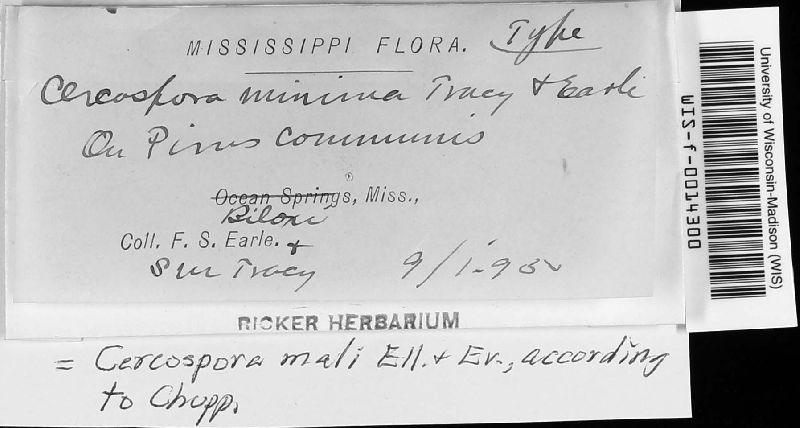 MISSISSIPPI FLORA. Type
Cercospora minima Tracy & Earle
On Pirus communis
Ocean Springs, Miss.,
Biloxi
Coll. F. S. Earle. &
S M Tracy
RICKER HERBARIUM
= Cercospora mali Ell. & Ev., according
to Chupp.
WIS-f-0014300
University of Wisconsin-Madison (WIS)